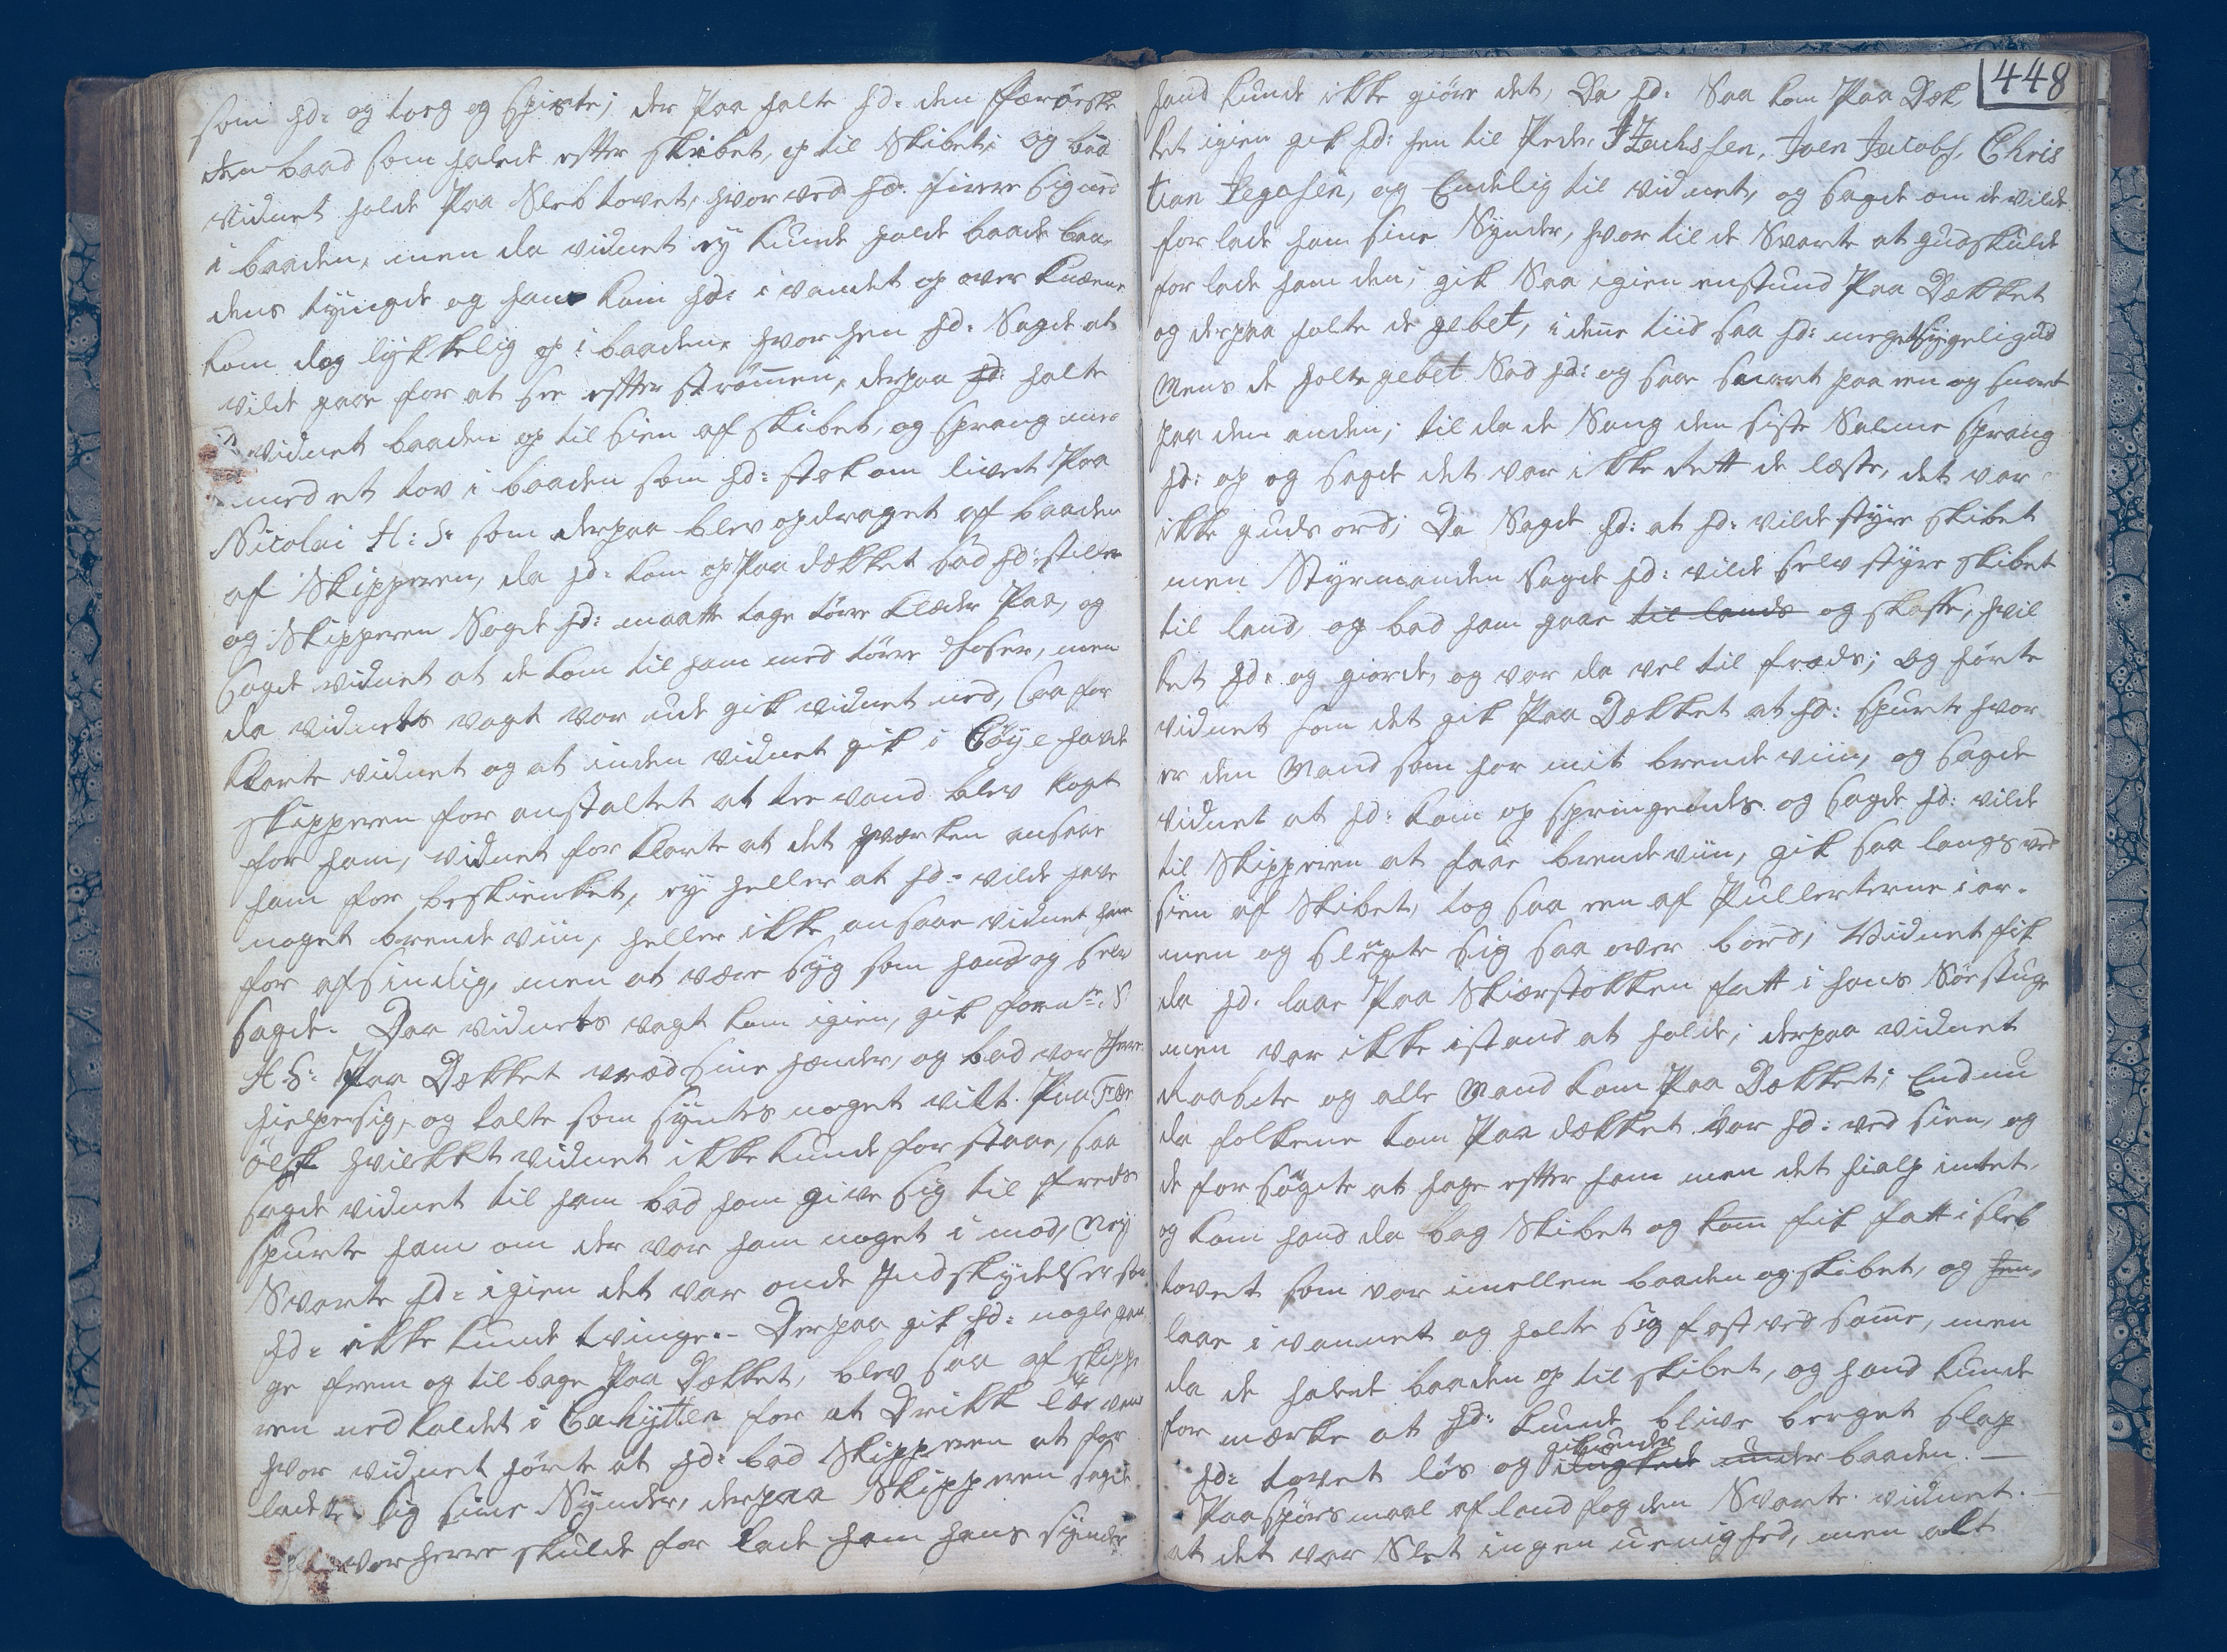 som hd: og torg og spiste; der Paa halte hd: den Færöeske
baad som halede efter skibet, op til Skibet; og bad
vidnet holde Paa Slebtovet, hvorved hd: firere sig ned
i baaden, men da vidnet ey kunde holde baade baa¬
dens tyngde og ham kom hd: i vandet op over Knæene
kom dog lykkelig op i baaden, hvorhen hd: Sagde at
vilde gaae for at see efter strömmen, derpaa hd: halte
vidnet baaden op til sien af skibet, og sprang
med et tov i baaden som hd: stak om livet Paa
Nicolai H: S: som derpaa blev opdraget af baaden
af Skipperen, da hd: kom op Paa dækket bad hd: stille
og Skipperen Sagde hd: maatte tage törre Klæder Paa, og
Sagde vidnet at de kom til ham med törre Hoser, men
da vidnets vagt var ude gik vidnet ned, saa for
Klarte vidnet og at inden vidnet gik i Cöye havde
skipperen for anstaltet at tee vand blev kogt
for ham, vidnet for Klarte at det hværken ansaae
ham for beskienket, ey heller at hd: vilde have
noget brende viin, heller ikke ansaae vidnet ham
for afsindig, men at være syg som hand og selv
sagde. Daa vidnets vagt kom igien, gik
H: S: Paa Dækket vred sine hænder, og bad vor Herre
hielpe sig, og talte som syntes noget vilt. Paa Fær
öisk hvilket vidnet ikke kunde for staae, saa
sagde vidnet til ham bad ham give sig til freds
spurte ham om der var ham noget i mod, Neij
Svarte hd: igien det var onde Indskydelser som
hd: ikke kunde tvinge. - Derpaa gik hd: nogle gan
ge frem og til bage Paa Dækket, blev saa af skippe
ren nedkaldet i Cahytten for at Drikk tee vand
hvor vidnet hörte at hd: bad Skipperen at for
lade sig sine Synder, derpaa Skipperen sagde
vorherre skulde for lade ham hans synder
448
hand kunde ikke giöre det, Da hd: Saa kom Paa Dæk
ket igien gik hd: hen til Peder Zachssen, Joen Jacobs, Chris
tian Jegosen, og Endelig til vidnet, og sagde om de vilde
for lade ham sine Synder, hvor til de Svarte at gud skulde
for lade ham den; gik Saa igien en stund Paa Dækket
og derpaa holte de gebet, i denne tiid saa hd: meget ud
Mens de holte gebet Sad hd: og saae snart paa een og snart
paa den anden; til da de Sang den siste Salme sprang
hd: op og sagde det var ikke Rett de læste, det var
ikke guds ord; Da Sagde hd: at hd: vilde styre skibet
men Styrmanden Sagde hd: vilde selv styre skibet
til land, og bad ham gaae til lands og skaffe, hvil
ket hd: og giorde, og var da vel til freds; og hörte
vidnet som det gik Paa Dækket at hd: spurte hvor
er den Mand som har mit brende viin, og sagde
vidnet at hd: kom op springendes og sagde hd: vilde
til Skipperen at faae brendeviin, gik saa langs ved
sien af Skibet, tog saa een af Pullerterne i ar¬
men og slængte sig saa over bord, Vidnet fik
da hd: laae Paa Skiærstokken fatt i hans Söe stug
men var ikke istand at holde; derpaa vidnet
Raabete og alle Mand kom Paa Dækket; Endnu
da folkene kom Paa dækket var hd: ved sien, og
de forsögte at hage efter ham men det hialp intet,
og kom hand da bag Skibet og kom fik fatt i sleb
tovet som var imellem baaden og skibet, og hen,
laae i vannet og holte sig fast ved same, men
da de halede baaden op til skibet, og hand kunde
for mærke at hd: kunde blive berget slap
hd: tovet lös og gik under under baaden. —
Paa spörsmaal af landfogden Svarte vidnet. —
at det var Slet ingen uenighed, men alt